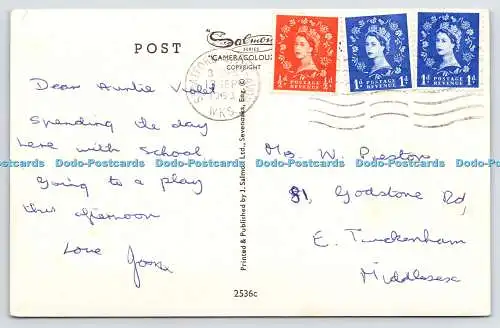 POST
"Salmon
SERIES
"CAMERACOLOUR
COPYRIGHT
½D POSTAGE REVENUE ½D
1D POSTAGE REVENUE 1D
1D POSTAGE REVENUE 1D
Dear Auntie Violet,
Spending the day
here with school
Going to a play
this afternoon
Love
Printed & Published by J. Salmon Ltd., Sevenoaks, Eng. ©
2536c
Mrs. W. Preston
81, Godstone Rd,
E. Twickenham
Middlesex
Dodo-Postcards Dodo-Postcards Dodo-Postcards Dodo-Postcards Dodo-Postcards Dodo-Postcards